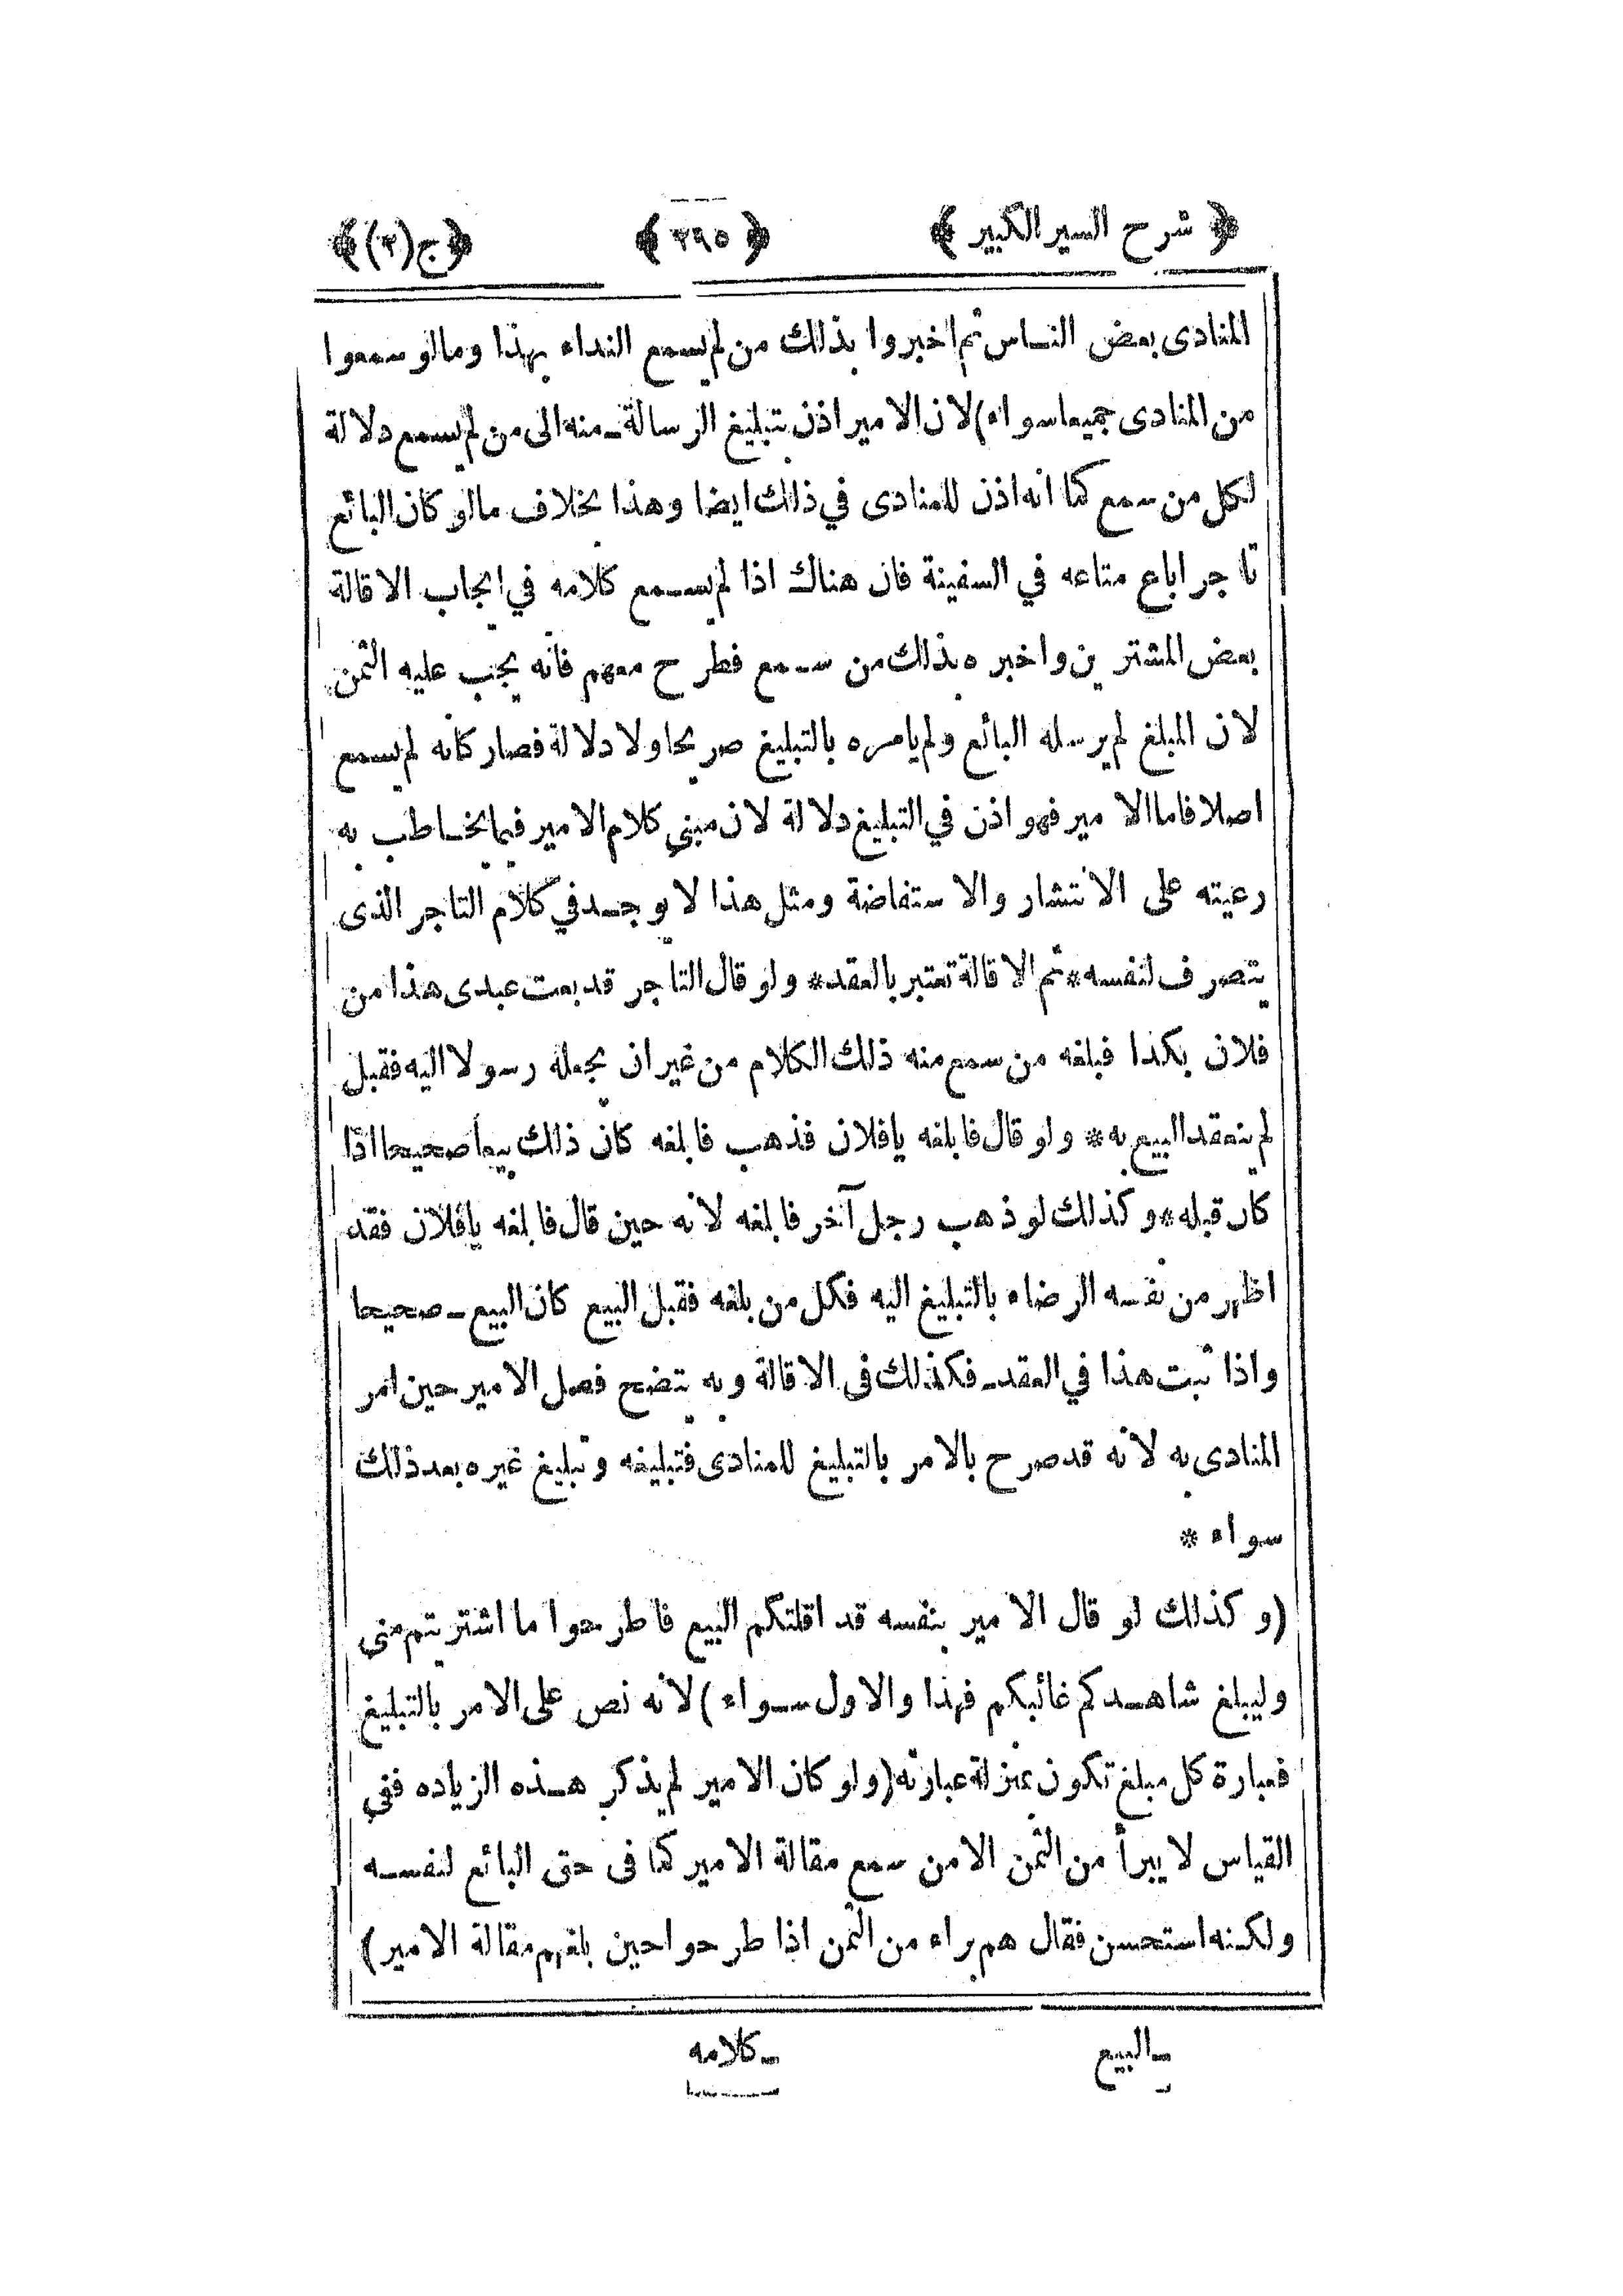 ﴿ شرح السير الكبير ﴾ ﴿ ٢٩٥ ﴾ ﴿ ج (٢) ﴾
المنادى بعض الناس ثم اخبروا بذلك من لم يسمع النداء بهذا ومالو سمعوا
من المنادى جميعا سواء) لان الامير اذن بتبليغ الرسالة منه الى من لم يسمع دلالة
لكل من سمع كما انه اذن للمنادى في ذلك ايضا وهذا بخلاف مالو كان البائع
تاجر اباع متاعه في السفينة فان هناك اذا لم يسمع كلامه في ايجاب الاقالة
بعض المشترين واخبره بذلك من سمع فطرح معهم فانه يجب عليه الثمن
لان المبلغ لم يرسله البائع ولم يامره بالتبليغ صريحا ولا دلالة فصار كانه لم يسمع
اصلا فاما الامير فهو اذن في التبليغ دلالة لان مبنى كلام الامير فيما يخاطب به
رعيته على الانتشار والاستفاضة ومثل هذا لا يوجد في كلام التاجر الذى
يتصرف لنفسه * ثم الاقالة تعتبر بالعقد * ولو قال التاجر قد بعت عبدى هذا من
فلان بكذا فبلغه من سمع منه ذلك الكلام من غير ان يجعله رسولا اليه فقبل
لم ينعقد البيع به * ولو قال فابلغه يافلان فذهب فابلغه كان ذلك بيعا صحيحا اذا
كان قبله * وكذلك لو ذهب رجل آخر فابلغه لانه حين قال فابلغه يافلان فقد
اظهر من نفسه الرضاء بالتبليغ اليه فكل من بلغه فقبل البيع كان البيع صحيحا
واذا ثبت هذا في العقد فكذلك فى الاقالة وبه يتضح فصل الامير حين امر
المنادى به لانه قد صرح بالامر بالتبليغ للمنادى فتبليغه وتبليغ غيره بعد ذلك
سواء *
(وكذلك لو قال الامير بنفسه قد اقلتكم البيع فاطرحوا ما اشتريتم منى
وليبلغ شاهدكم غائبكم فهذا والاول سواء) لانه نص على الامر بالتبليغ
فعبارة كل مبلغ تكون بمنزلة عبارته (ولو كان الامير لم يذكر هذه الزياده ففي
القياس لا يبرأ من الثمن الا من سمع مقالة الامير كما فى حق البائع لنفسه
ولكنه استحسن فقال هم براء من الثمن اذا طرحوا حين بلغهم مقالة الامير)
ـ البيع ـ كلامه